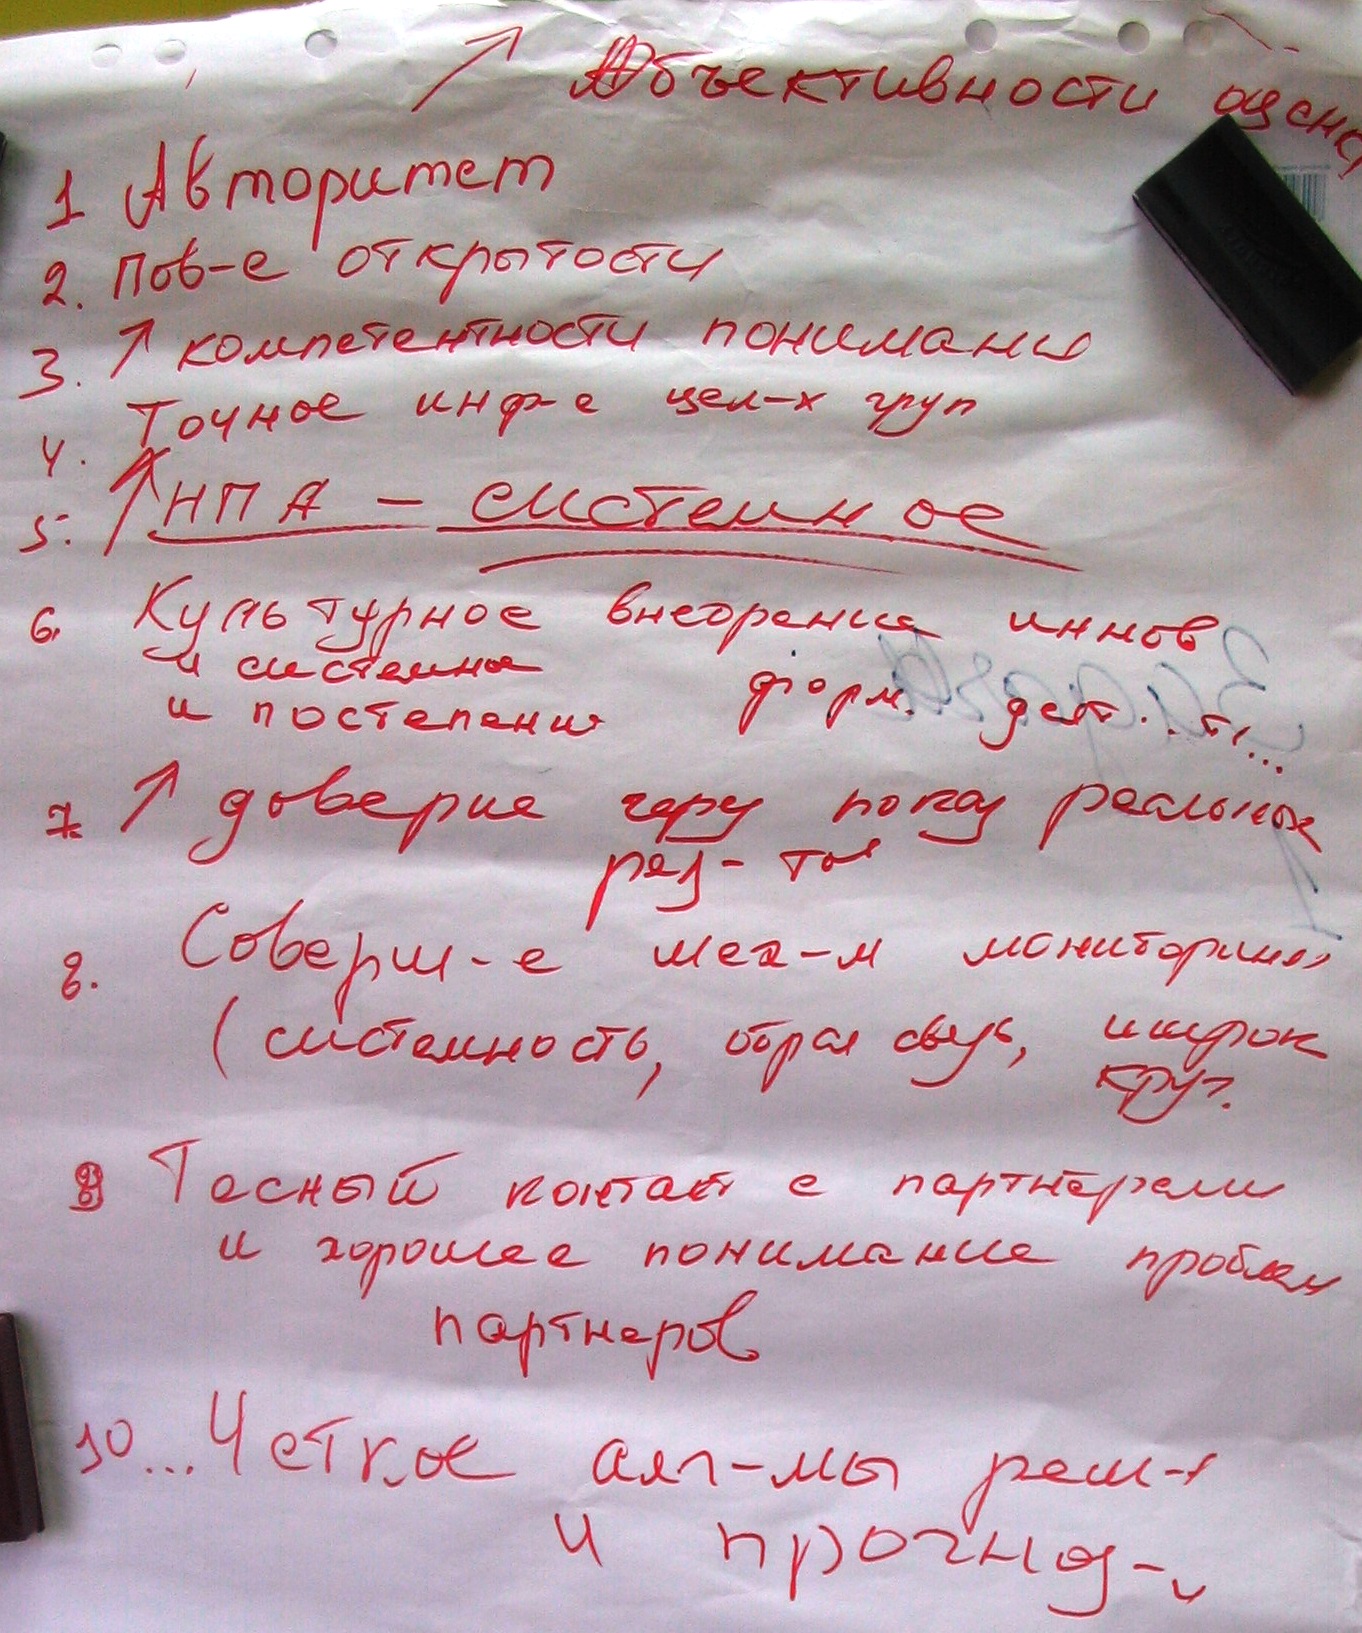 ↗ Объективности оценк
1 Авторитет
2. Пов-е открытости
3. ↗ компетентности понимани
4. Точное инф-е цел-х груп
5. ↑ НПА - системное
6. Культурное внедрение иннов
и системное форм. деят..ти...
и постепенно
7. ↗ доверие через показ реальных
рез-тов
8. Соверш-е мех-м мониторинга
(системность, обрат связь, широк
круг.
9 Тесный контакт с партнёрами
и хорошее понимание проблем
партнеров
10... Четкое алг-мы реш-я
и прогноз-я